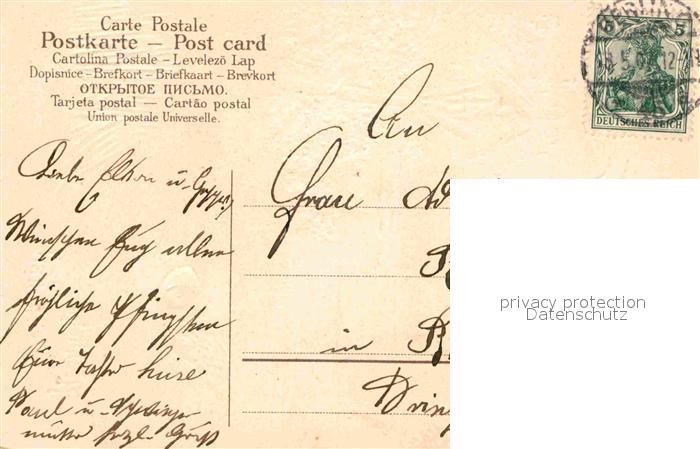 Carte Postale
Postkarte — Post card
Cartolina Postale – Levelező Lap
Dopisnice – Brefkort – Briefkaart – Brevkort
ОТКРЫТОЕ ПИСЬМО.
Tarjeta postal — Cartão postal
Union postale Universelle.
5 5
DEUTSCHES REICH
An
Frau
in
Liebe Eltern u.
Wünschen Euch allen
fröhliche Pfingsten
Eure Tochter Luise
Paul u.
mutter herzl. Grüß
privacy protection
Datenschutz